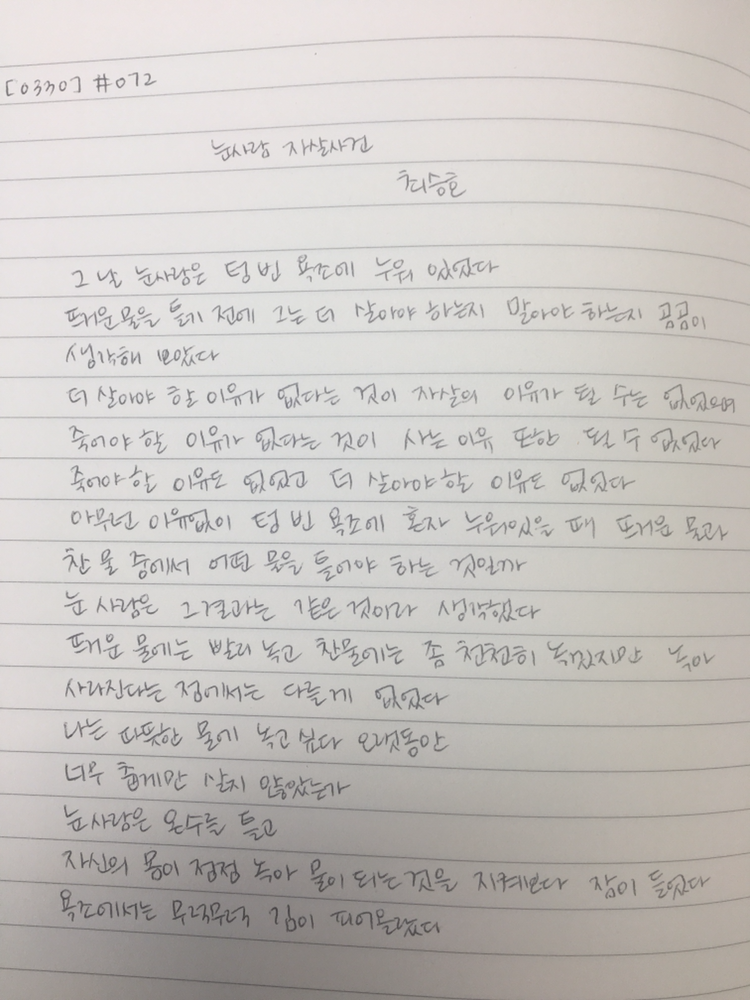 [0330] #072
눈사람 자살사건
최승호
그 날 눈사람은 텅 빈 욕조에 누워 있었다
뜨거운물을 틀기 전에 그는 더 살아야 하는지 말아야 하는지 곰곰이
생각해 보았다
더 살아야 할 이유가 없다는 것이 자살의 이유가 될 수는 없었으며
죽어야 할 이유가 없다는 것이 사는 이유 또한 될 수 없었다
죽어야 할 이유도 없었고 더 살아야 할 이유도 없었다
아무런 이유없이 텅 빈 욕조에 혼자 누워있을 때 뜨거운 물과
찬 물 중에서 어떤 물을 틀어야 하는 것일까
눈 사람은 그 결과는 같은 것이라 생각했다
뜨거운 물에는 빨리 녹고 찬물에는 좀 천천히 녹겠지만 녹아
사라진다는 점에서는 다를게 없었다
나는 따뜻한 물에 녹고 싶다 오랫동안
너무 춥게만 살지 않았는가
눈사람은 온수를 틀고
자신의 몸이 점점 녹아 물이 되는 것을 지켜보다 잠이 들었다
욕조에서는 무럭무럭 김이 피어올랐다